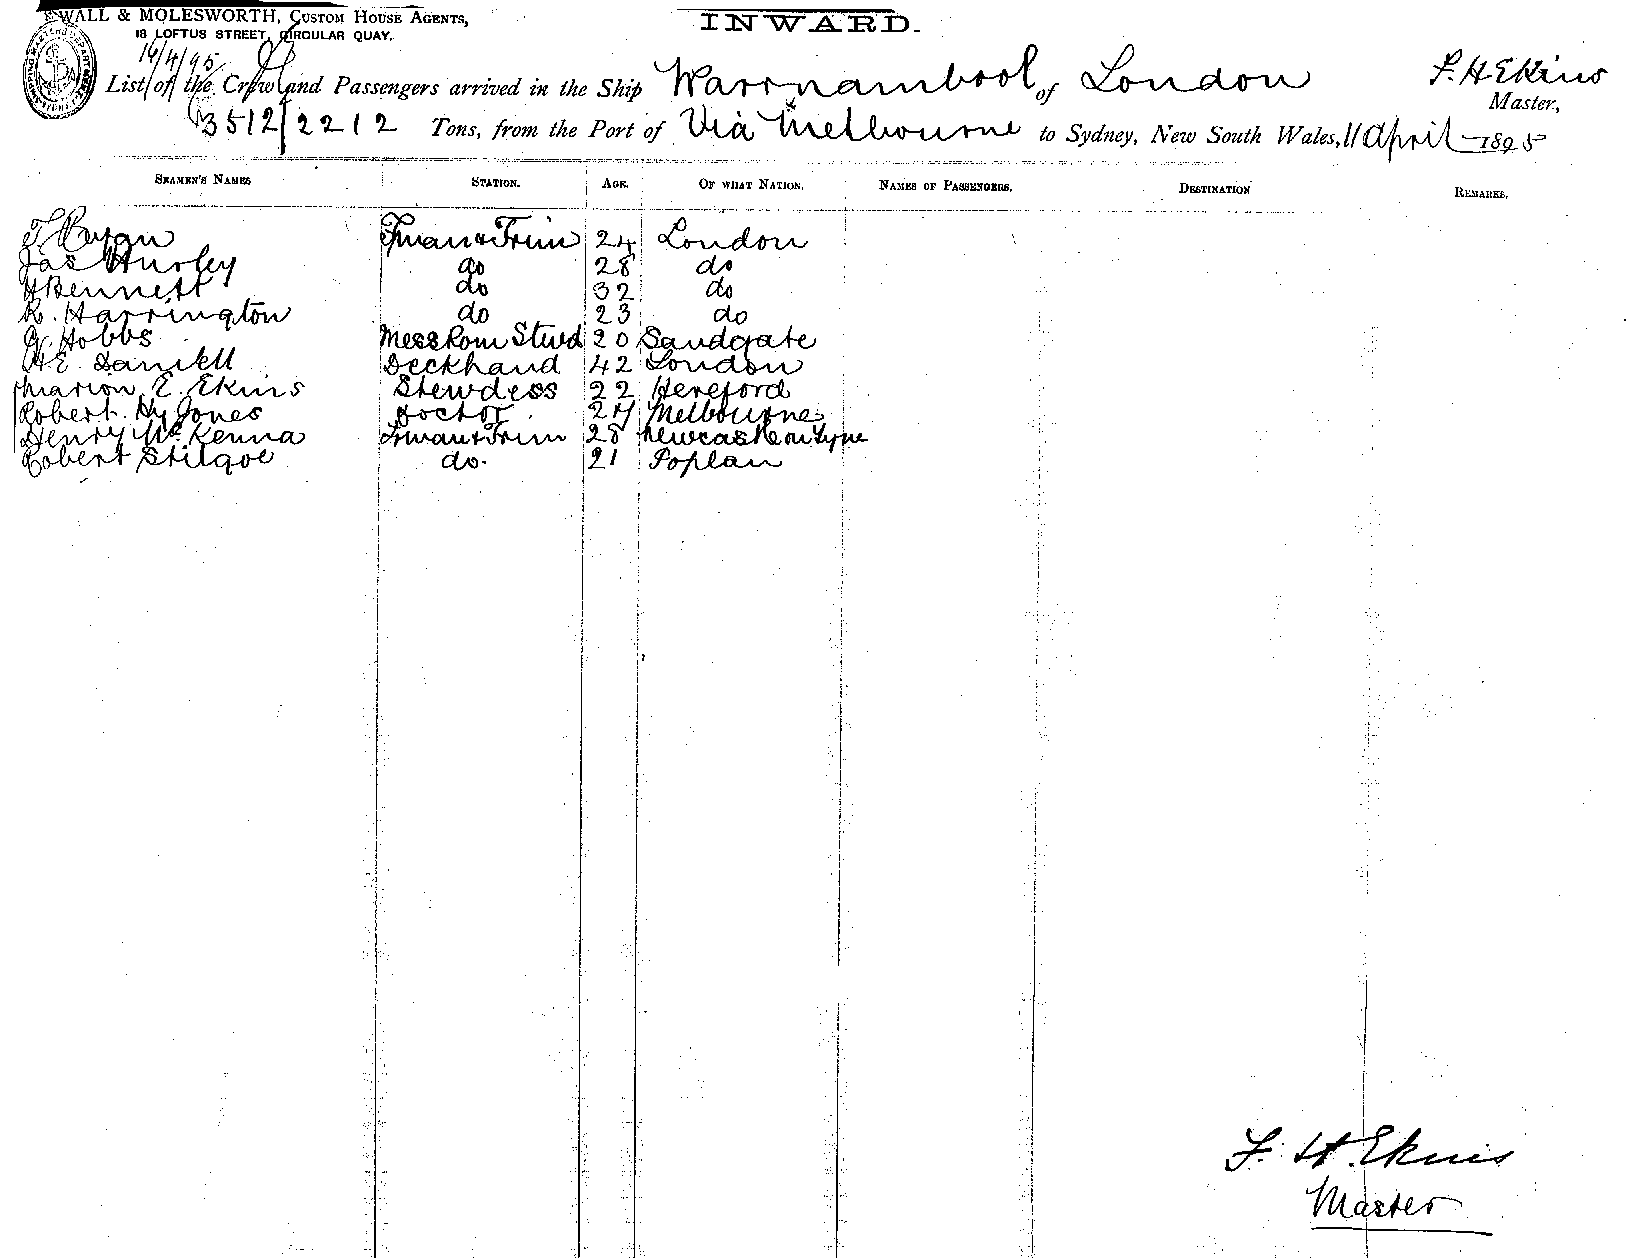 WALL & MOLESWORTH, CUSTOM HOUSE AGENTS,
18 LOFTUS STREET, CIRCULAR QUAY.
INWARD.
16/4/95
List of the Crew and Passengers arrived in the Ship Warrnambool of London F. H Ekins
Master,
3512/2212 Tons, from the Port of Via Melbourne to Sydney, New South Wales, 11 April 1895
SEAMEN'S NAMES STATION. AGE. OF WHAT NATION. NAMES OF PASSENGERS. DESTINATION REMARKS.
T Ryan Fman & Trim 24 London
Jas Hurley do 28 do
H Bennett do 32 do
R. Harrington do 23 do
Hobbs Mess Rom Stwd 20 Sandgate
H E. Daniell Deckhand 42 London
Marion E. Ekins Stewdess 22 Hereford
Robert Hy Jones Doctor 24 Melbourne
Henry McKenna Fman & Trim 28 Newcastle on Tyne
Robert Stilgoe do. 21 Poplan
F. H. Ekins
Master